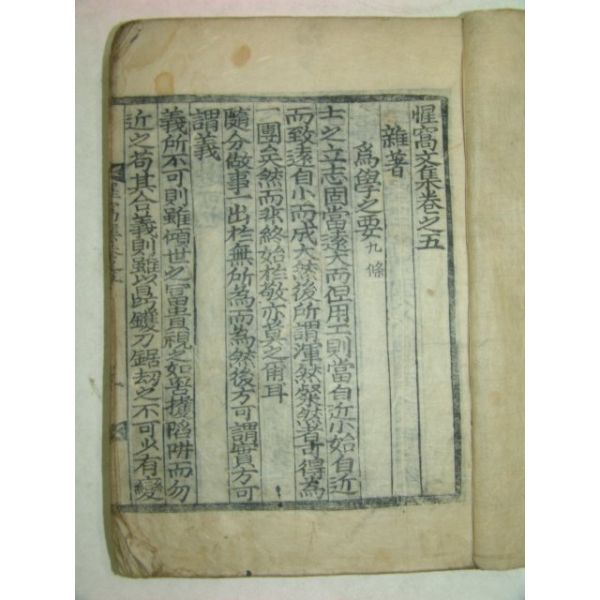 惺窩文集卷之五
雜著
爲學之要九條
士之立志固當遠大而但用工則當自近小始自近
而致遠自小而成大然後所謂渾然粲然者可得爲
一團矣然而非終始於敬亦莫之能耳
隨分做事一出於無所爲而爲然後方可謂實方可
謂義
義所不可則雖傾世之富貴視之如擭陷阱而勿
近之苟其合義則雖以鼎鑊刀鋸劫之不可以有變